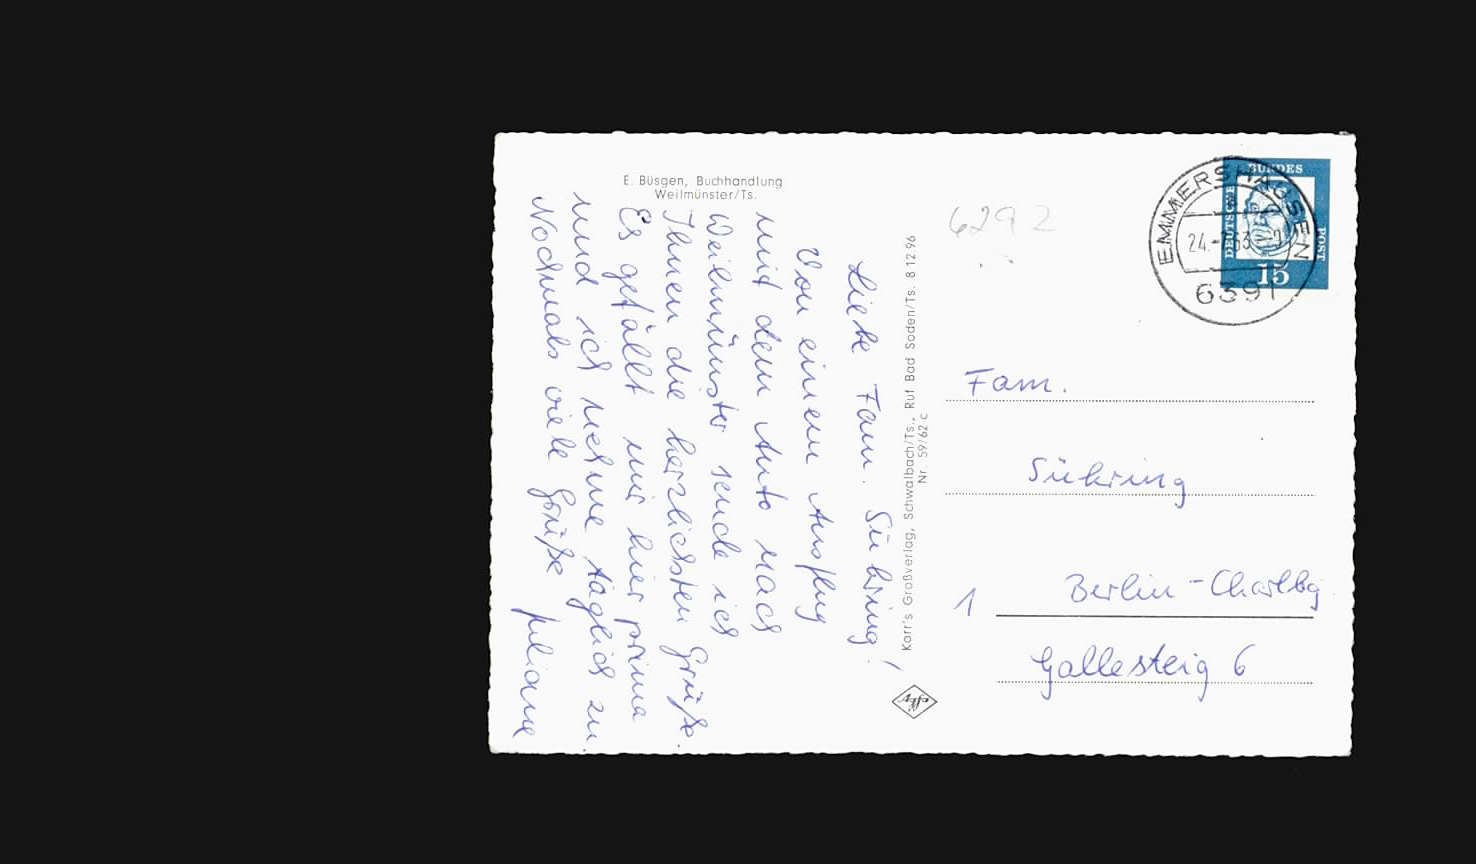 E. Büsgen, Buchhandlung
Weilmünster/Ts.
Liebe Fam. Sükring!
Von einem Ausflug
mit dem Auto nach
Weilmünster sende ich
Ihnen die herzlichsten Grüße.
Es gefällt mir hier prima
und ich nehme täglich zu.
Nochmals viele Grüße Juliane
Karr's Großverlag, Schwalbach/Ts., Ruf Bad Soden/Ts. 8 12 96
Nr. 59/62 c
Agfa
6292
EMMERSHAUSEN
24.
63
6391
DEUTSCHE
BUNDES
POST
15
Fam.
Sükring
1 Berlin-Charlbg
Gallesteig 6